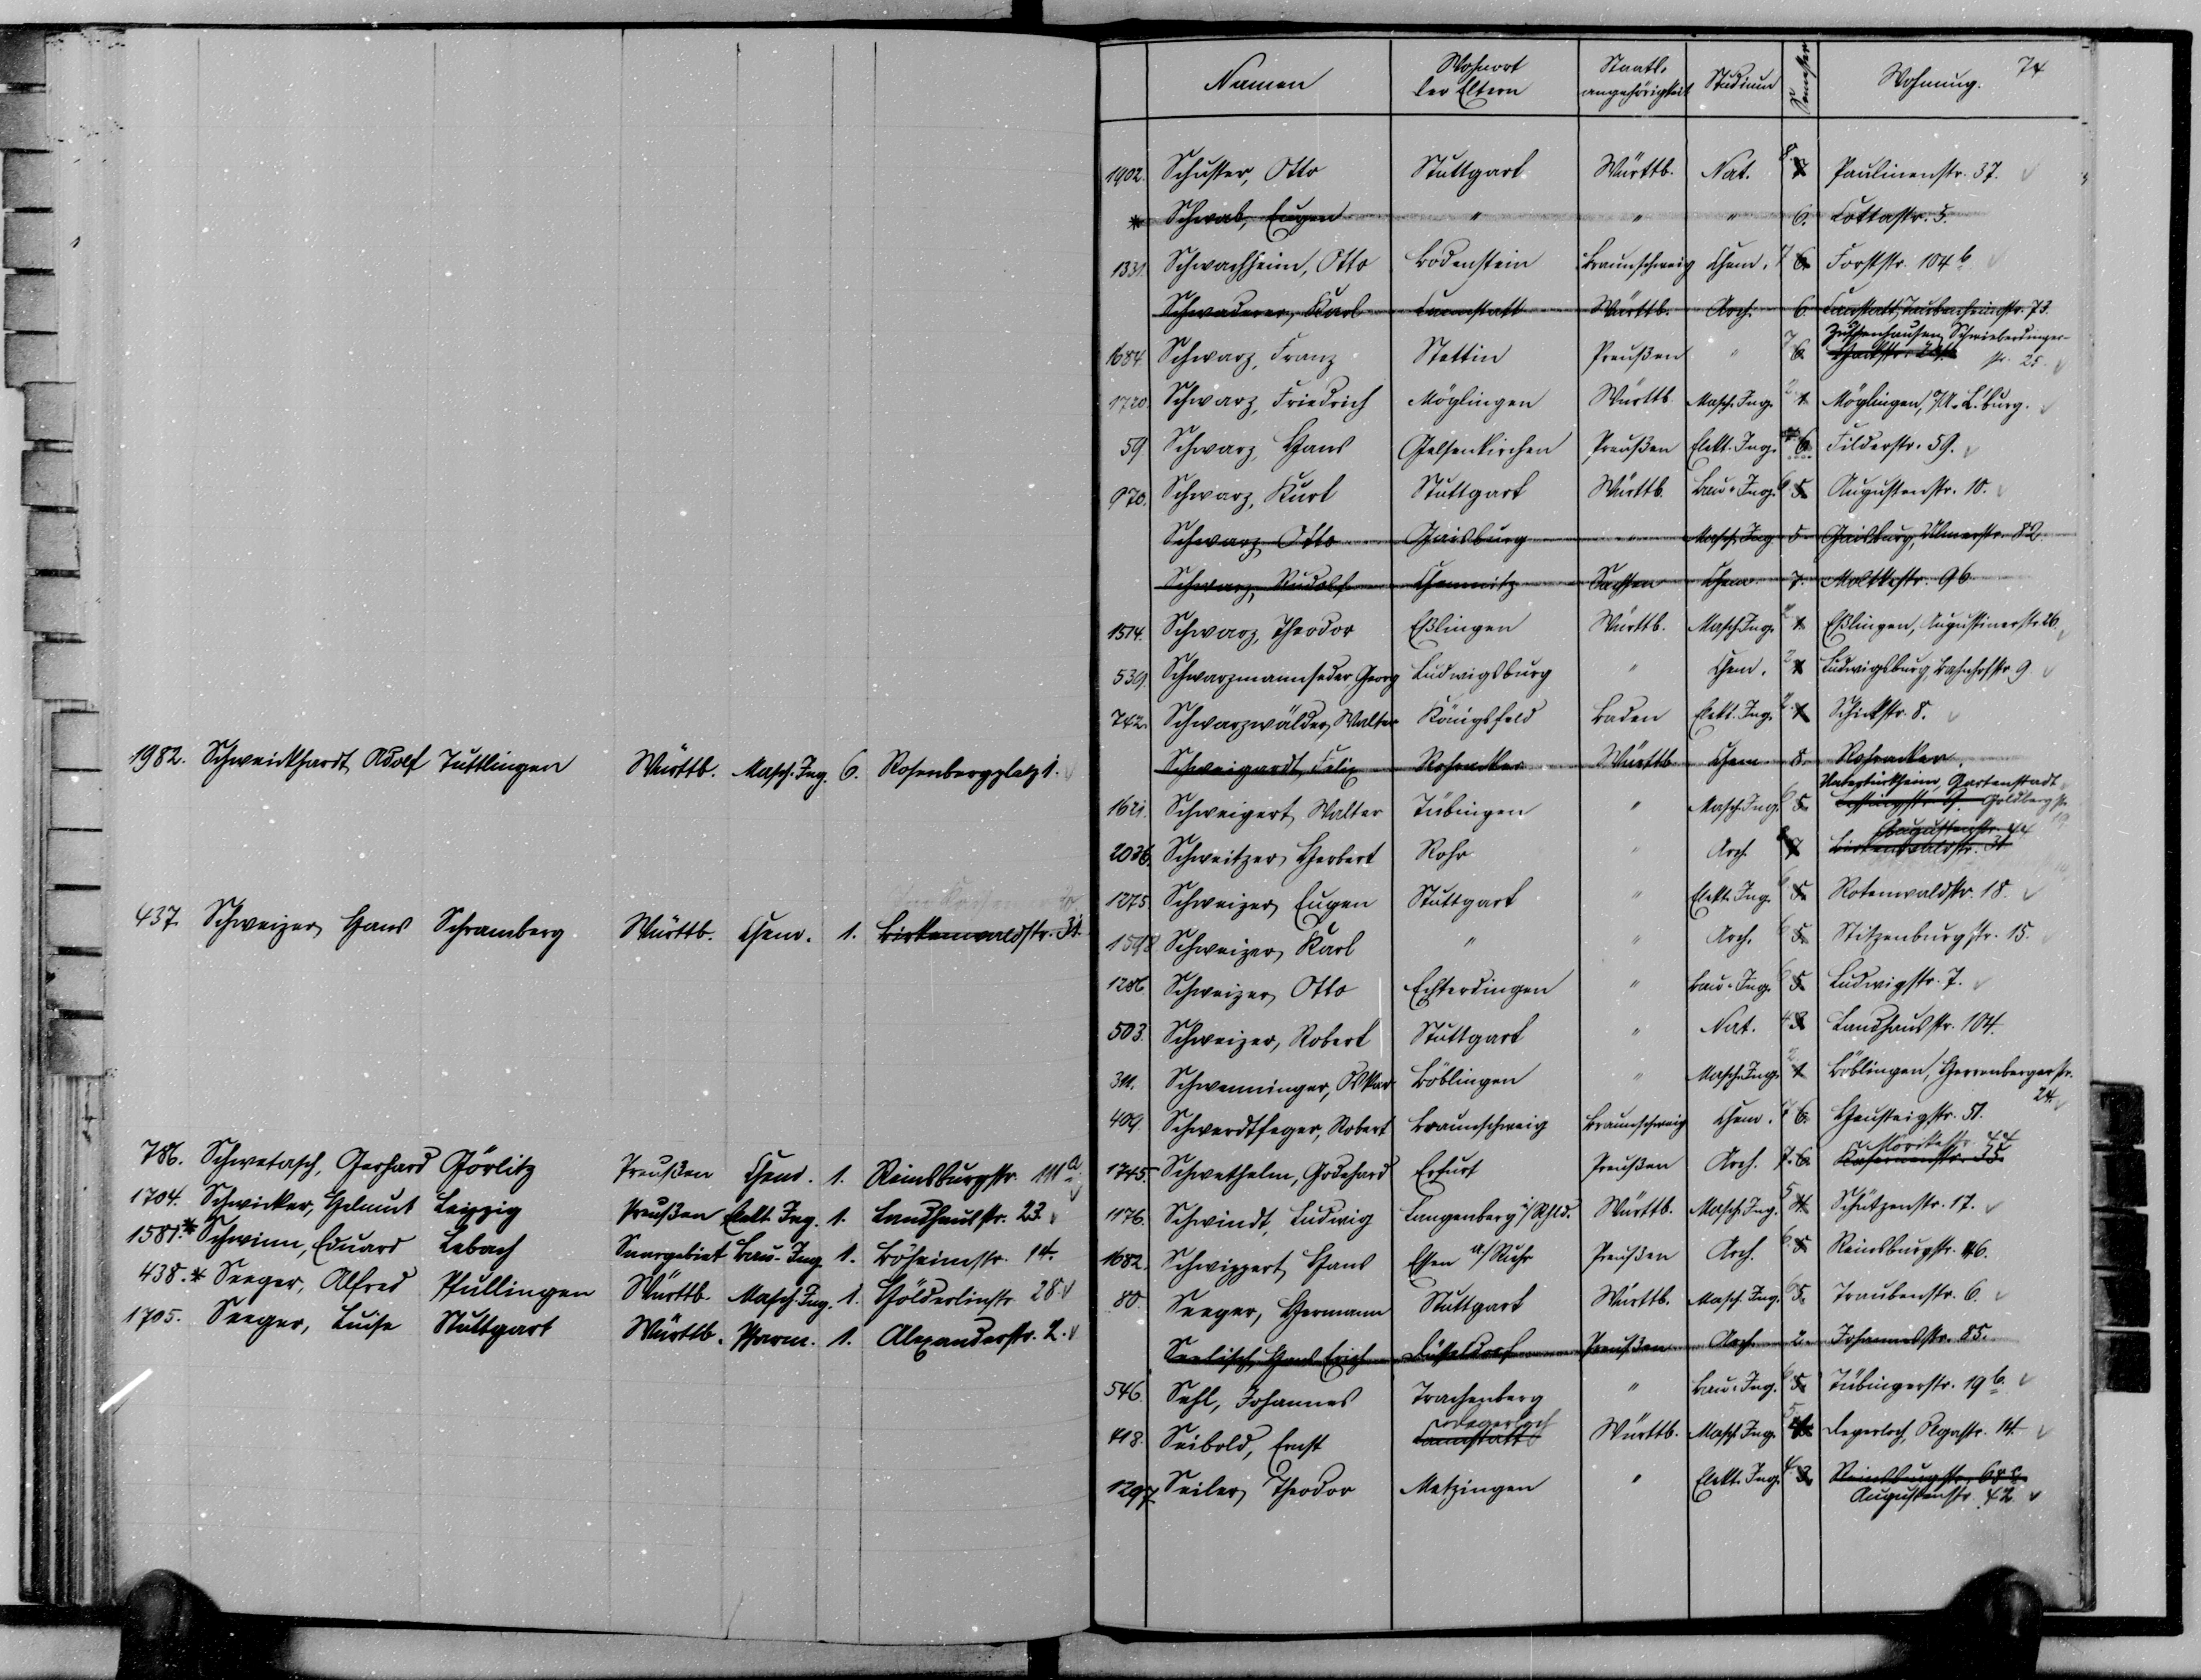 1982. Schweickhardt, Adolf Tuttlingen Württb. Masch. Ing. 6. Rosenbergplatz 1.
437. Schweizer, Hans Schramberg Württb. Chem. 1. Birkenwaldstr. 31.
786. Schwetasch, Gerhard Görlitz Preußen Chem. 1. Reinsburgstr. 111 a.
1704. Schwicker, Helmut Leipzig Preußen Elekt. Ing. 1. Landhausstr. 23.
1581.* Schwinn, Eduard Lebach Saargebiet Bau-Ing. 1. Böheimstr. 14.
438.* Seeger, Alfred Pfullingen Württb. Masch. Ing. 1. Hölderlinstr. 28.
1705. Seeger, Luise Stuttgart Württb. Pharm. 1. Alexanderstr. 2.
74
Namen Wohnort der Eltern Staatsangehörigkeit Studium Semester Wohnung.
1902. Schuster, Otto Stuttgart Württb. Nat. 8. 7 Paulinenstr. 37.
* Schwab, Eugen " " " 6. Cottastr. 5.
1331. Schwachheim, Otto Bodenstein Braunschweig Chem. 7 6. Forststr. 104 b
Schwaderer, Karl Cannstatt Württb. Arch. 6. Cannstatt, Taubenheimstr. 73.
1684. Schwarz, Franz Stettin Preußen " 7 6. Zuffenhausen, Schwieberdinger-
str. 25.
1720. Schwarz, Friedrich Möglingen Württb. Masch. Ing. 2 1. Möglingen, O/A. L'burg.
59. Schwarz, Hans Gelsenkirchen Preußen Elekt. Ing. 6. Filderstr. 59.
970. Schwarz, Kurt Stuttgart Württb. Bau-Ing. 6 5. Augustenstr. 10.
Schwarz, Otto Gaisburg " Masch. Ing. 5. Gaisburg, Ulmerstr. 82.
Schwarz, Rudolf Chemnitz Sachsen Chem. 7. Moltkestr. 96
1514. Schwarz, Theodor Eßlingen Württb. Masch. Ing. 2 1. Eßlingen, Augustinerstr. 26.
539. Schwarzmannseder, Georg Ludwigsburg " Chem. 2 1 Ludwigsburg, Bahnhofstr. 9.
742. Schwarzwälder, Walter Königsfeld Baden Elekt. Ing. 2 1 Schickstr. 8.
Schweigardt, Felix Rohracker Württb. Chem. 8. Rohracker.
Untertürkheim, Gartenstadt
1621. Schweigert, Walter Tübingen " Masch. Ing. 6 5. Lessingstr. 9. Goldbergstr. 19
Augustenstr. 44
2036. Schweitzer, Herbert Rohr " Arch. 8 7 Birkenwaldstr. 31
1275. Schweizer, Eugen Stuttgart " Elekt. Ing. 6 5. Rotenwaldstr. 18.
1598. Schweizer, Karl " " Arch. 6 5. Stitzenburgstr. 15.
1286. Schweizer, Otto Echterdingen " Bau-Ing. 6 5 Ludwigstr. 7.
503. Schweizer, Robert Stuttgart " Nat. 4 3 Landhausstr. 104.
311. Schwenninger, Oskar Böblingen " Masch. Ing. 2 1 Böblingen, Herrenbergerstr.
24.
409. Schwerdtfeger, Robert Braunschweig Braunschweig Chem. 7 6. Hausteigstr. 51.
Mörikestr. 44
1745. Schwethelm, Godehard Erfurt Preußen Arch. 7. 6. Kasernenstr. 35.
1176. Schwindt, Ludwig Langenberg i/Rhld. Württb. Masch. Ing. 5 4 Schützenstr. 17.
1682. Schwippert, Hans Essen a./Ruhr Preußen Arch. 6. 5 Reinsburgstr. 46.
80. Seeger, Hermann Stuttgart Württb. Masch. Ing. 6 5. Traubenstr. 6.
Seelisch, Hans Erich Düsseldorf Preußen Arch. 2. Johannesstr. 85.
546. Sehl, Johannes Trachenberg " Bau-Ing. 6 5. Tübingerstr. 19 b.
Degerloch
418. Seibold, Ernst Cannstatt Württb. Masch. Ing. 5 4. Degerloch, Olgastr. 14.
1297. Seiler, Theodor Metzingen " Elekt. Ing. 4 3. Reinsburgstr.
Augustenstr. 42.